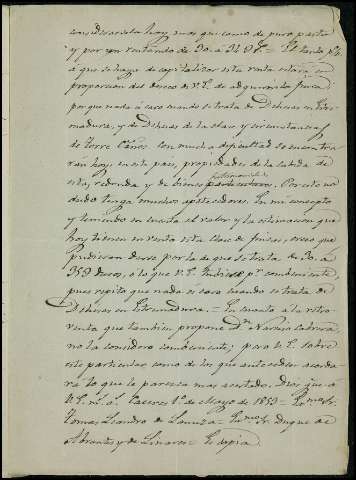 considerarsela hoy, mas que como de puro pasto
y por un rentando de 30. a 34 0
a que se haya de capitalizar esta renta estará en
proporcion del deseo de V.E. de adquirir la finca
porque nada és caro cuando se trata de Dehesas en Estre-
madura, y de Dehesas de la clase y circunstancias
de Torre Caños. con mucha dificultad se encontra
rán hoy, en este pais, propiedades de la cabida de
esta, redonda y de bienes patrimoniales. Por esto no
dudo tenga muchos apetecedores. En mi concepto
y teniendo en cuenta el valor y la estimacion que
hoy tienen en venta esta clase de fincas, creo que
pudieran darse por la de que se trata de 30. a
35 duros, ó lo que V.E. hubiese pr. combeniente,
pues repito que nada és caro cuando se trata de
Dehesas en Estremadura. = En cuanto á la retro-
venta que tambien propone Dn. Narciso Cabrera,
no la considero combeniente; pero V.E. sobre
este particular como de los que anteceden acorda-
rá lo que le parezca mas acertado. Dios gue. á
V.E. m. a. Caceres 1º. de Mayo de 1859 = Exmo. Sr.
Tomas Leandro de = Exmo. Sr. Duque de
Abrantes y de Linares = Es copia